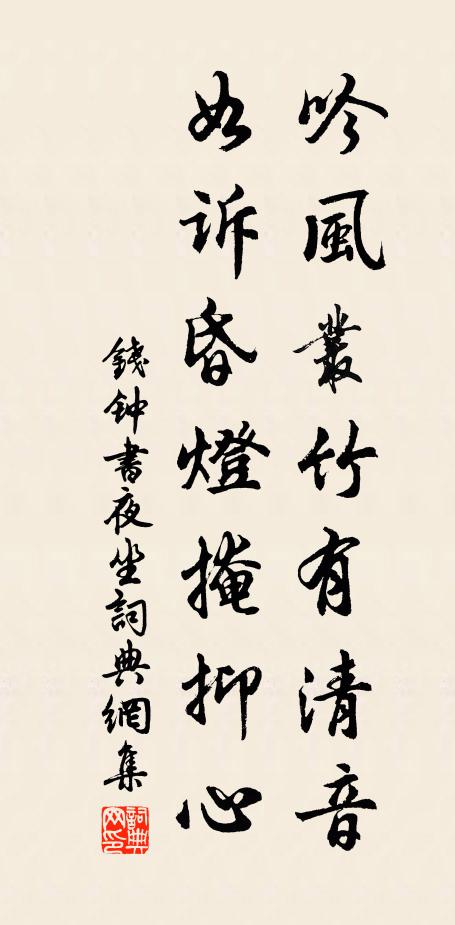 吟風叢竹有清音
如訴昏燈掩抑心
錢鈡書夜坐詞典網集
詞典网印